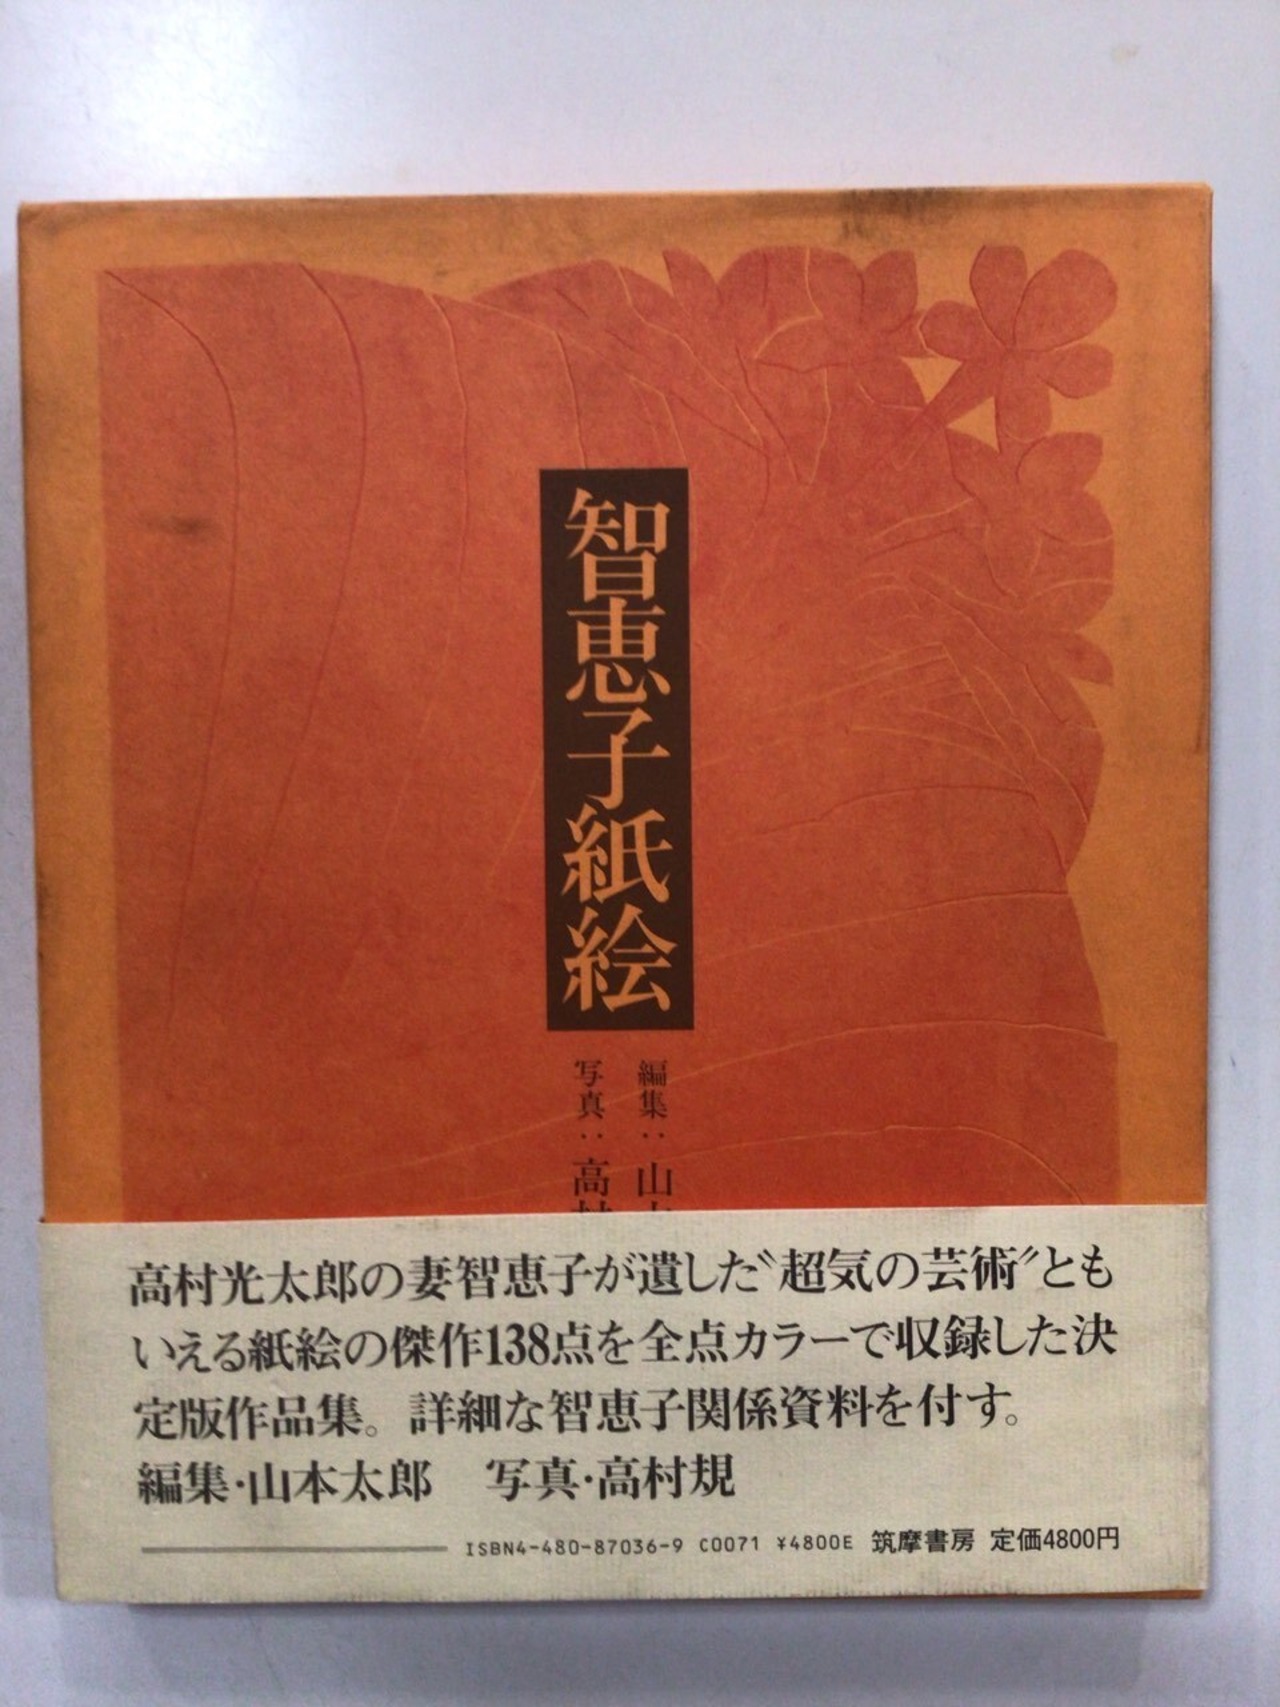 智恵子紙絵
編集：山
写真：高
高村光太郎の妻智恵子が遺した〝超気の芸術〞とも
いえる紙絵の傑作138点を全点カラーで収録した決
定版作品集。詳細な智恵子関係資料を付す。
編集・山本太郎　写真・高村規
ISBN4-480-87036-9 C0071 ¥4800E 筑摩書房 定価4800円